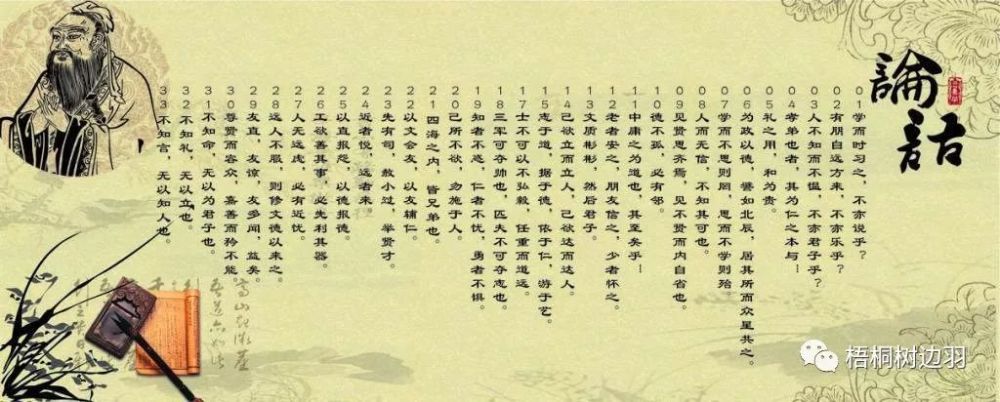 論語
01学而时习之，不亦说乎？
02有朋自远方来，不亦乐乎？
03人不知而不愠，不亦君子乎？
04孝弟也者，其为仁之本与！
05礼之用，和为贵。
06为政以德，譬如北辰，居其所而众星共之。
07学而不思则罔，思而不学则殆
08人而无信，不知其可也。
09见贤思齐焉，见不贤而内自省也
10德不孤，必有邻。
11中庸之为道也，其至矣乎！
12老者安之，朋友信之，少者怀之。
13文质彬彬，然后君子。
14己欲立而立人，己欲达而达人。
15志于道，据于德，依于仁，游于艺。
17士不可以不弘毅，任重而道远。
18三军可夺帅也，匹夫不可夺志也。
19知者不惑，仁者不忧，勇者不惧。
20己所不欲，勿施于人。
21四海之内，皆兄弟也。
22以文会友，以友辅仁。
23先有司，赦小过，举贤才。
24近者悦，远者来。
25以直报怨，以德报德。
26工欲善其事，必先利其器。
27人无远虑，必有近忧。
28远人不服，则修文德以来之
29友直，友谅，友多闻，益矣。
30尊贤而容众，嘉善而矜不能。
31不知命，无以为君子也。
32不知礼，无以立也。
33不知言，无以知人也。
梧桐树边羽